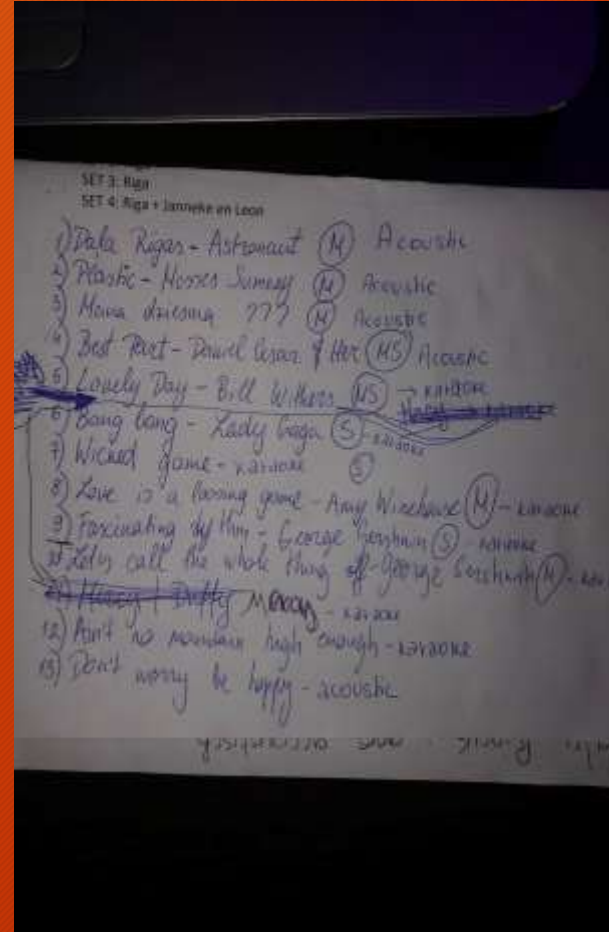 SET 3: Riga
SET 4: Riga + Janneke en Leon
1) Daba Rigas - Astronaut (M) Acoustic
2) Plastic - Mosses Sumney (M) Acoustic
3) Mana dziesma ??? (M) Acoustic
4) Best Part - Daniel Cesar & Her (MS) Acoustic
5) Lovely Day - Bill Withers (MS) → karaoke
6) Bang bang - Lady Gaga (S) - karaoke
7) Wicked game - karaoke (S)
8) Love is a loosing game - Amy Winehouse (M) - karaoke
9) Fascinating rythm - George Gershwin (S) - karaoke
10) Let's call the whole thing off - George Gershwin (M) - kar
Mercy - karaoke
12) Ain't no mountain high enough - karaoke
13) Don't worry be happy - acoustic